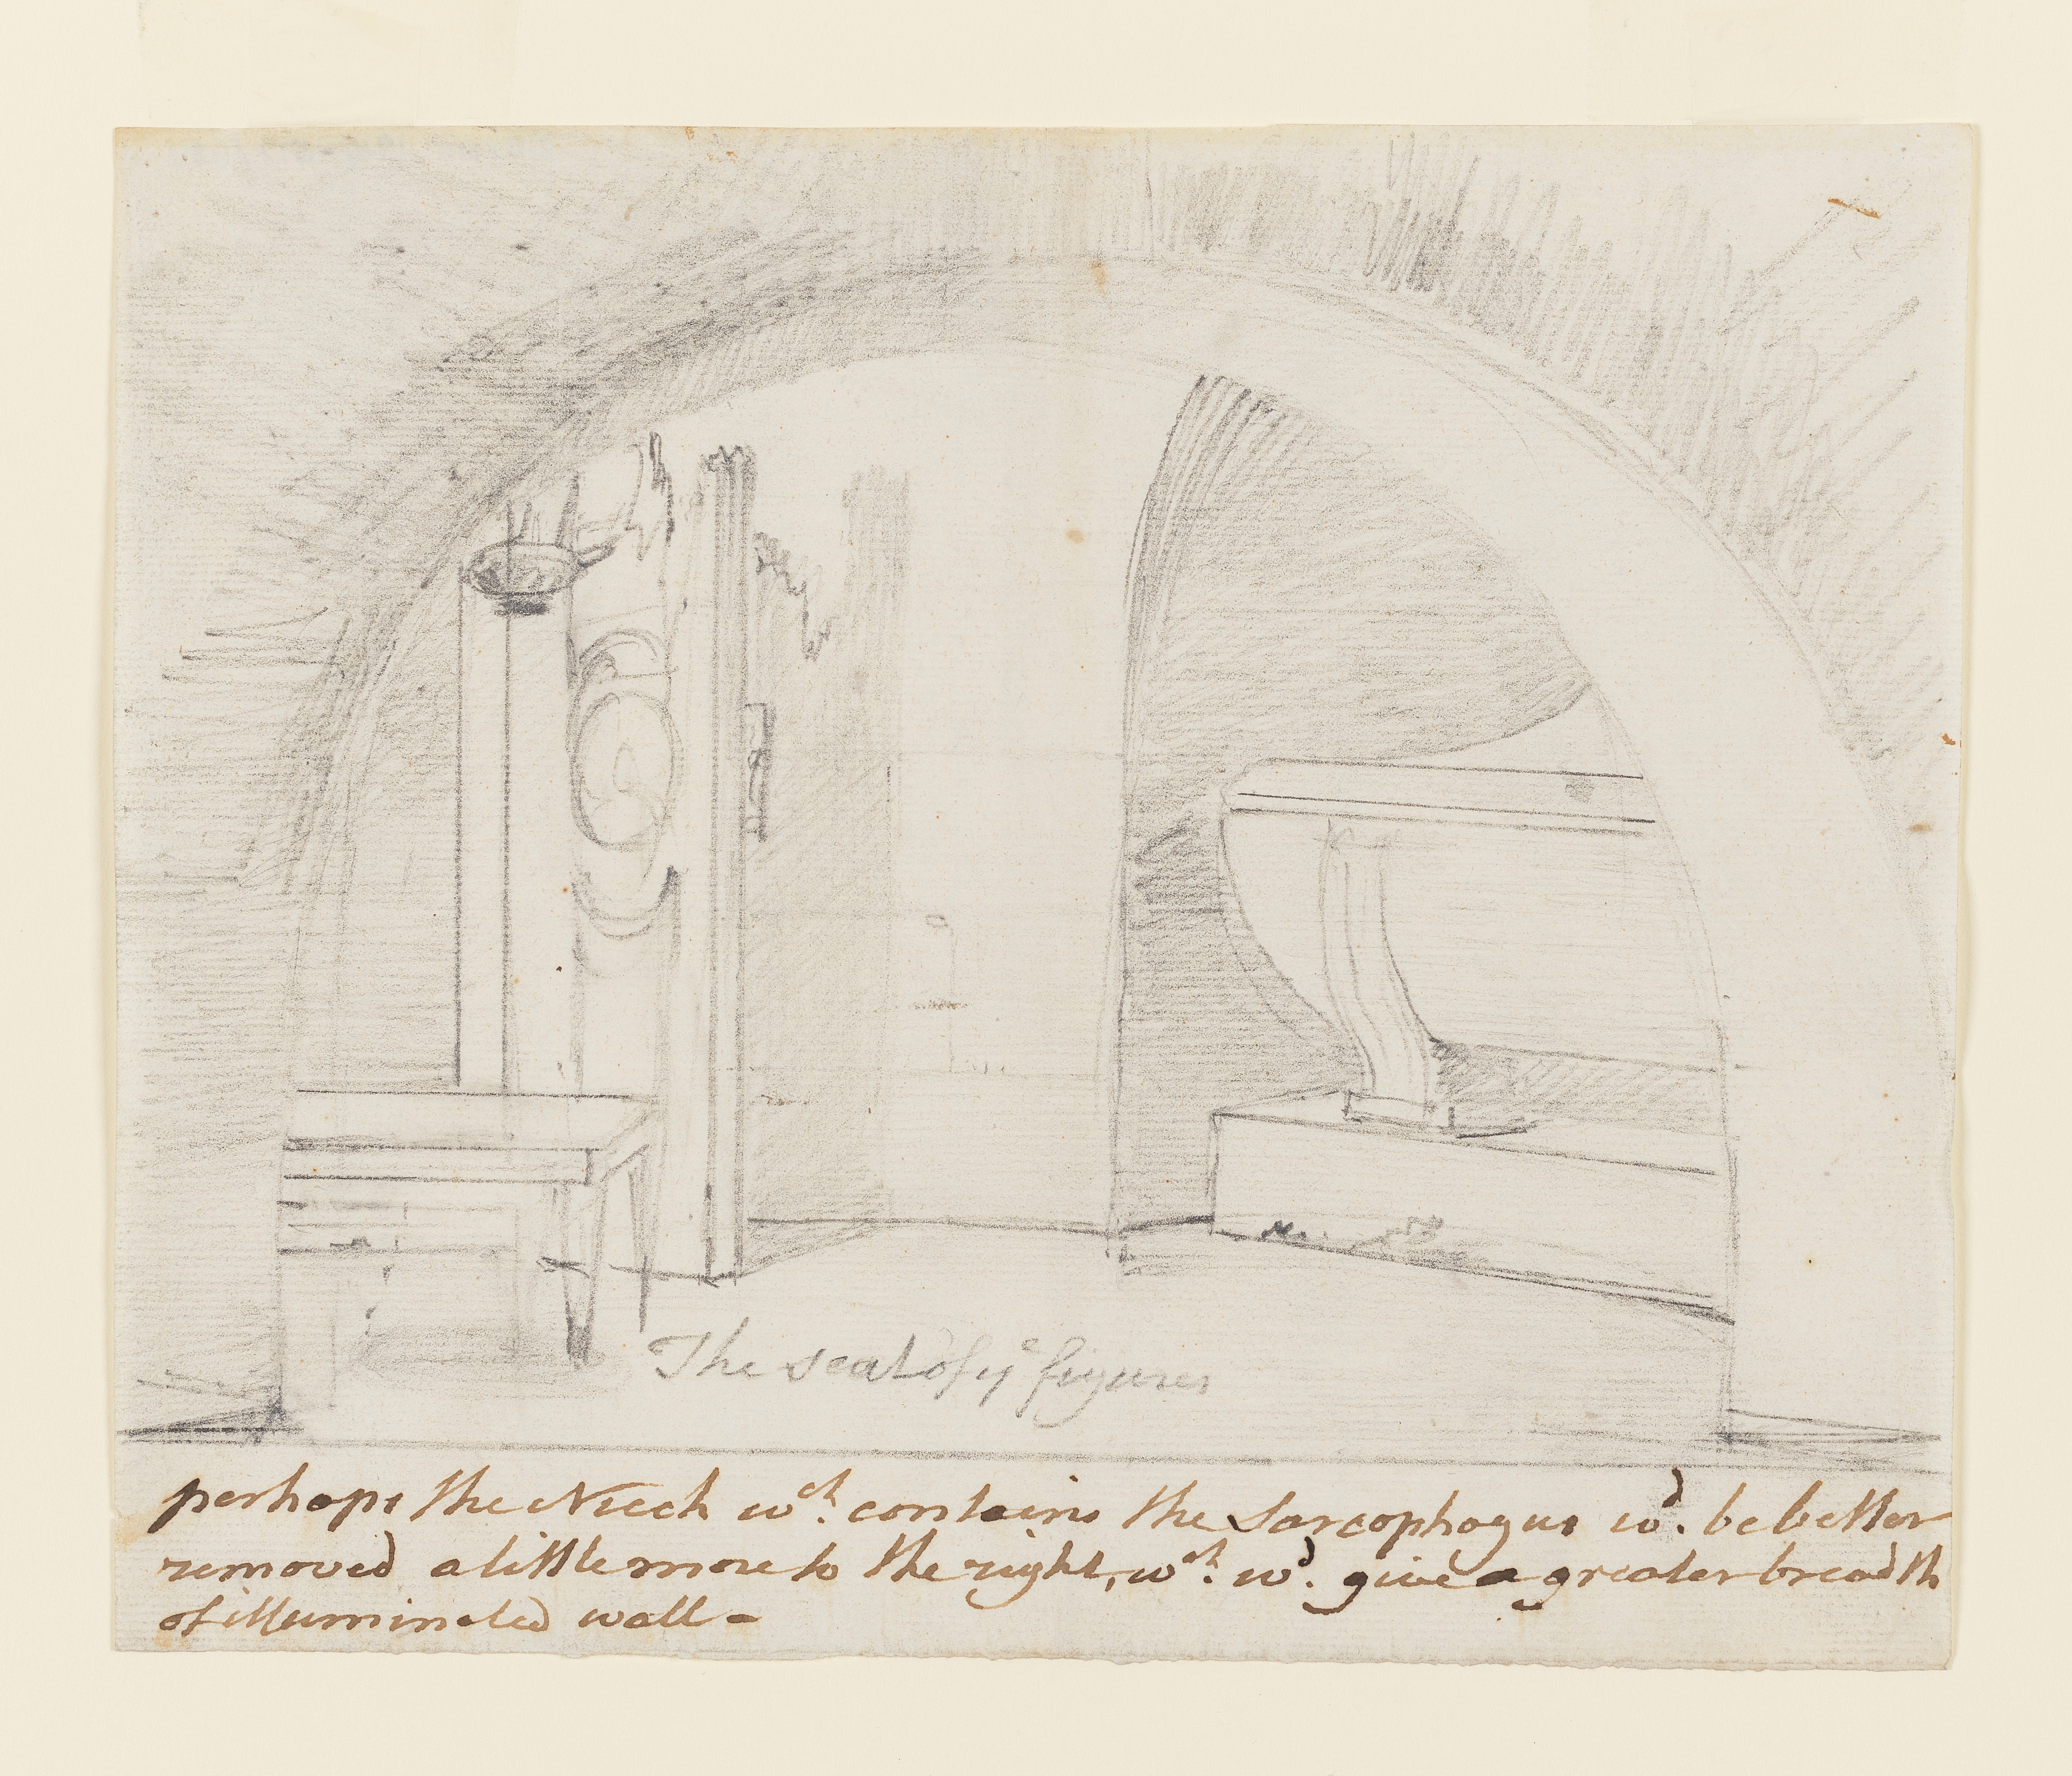 The seat of yᵉ figures
perhaps the Niech wᶜʰ. contains the Sarcophagus wᵈ. be better
removed a little more to the right, wᶜʰ. wᵈ. give a greater breadth
of illuminated wall -